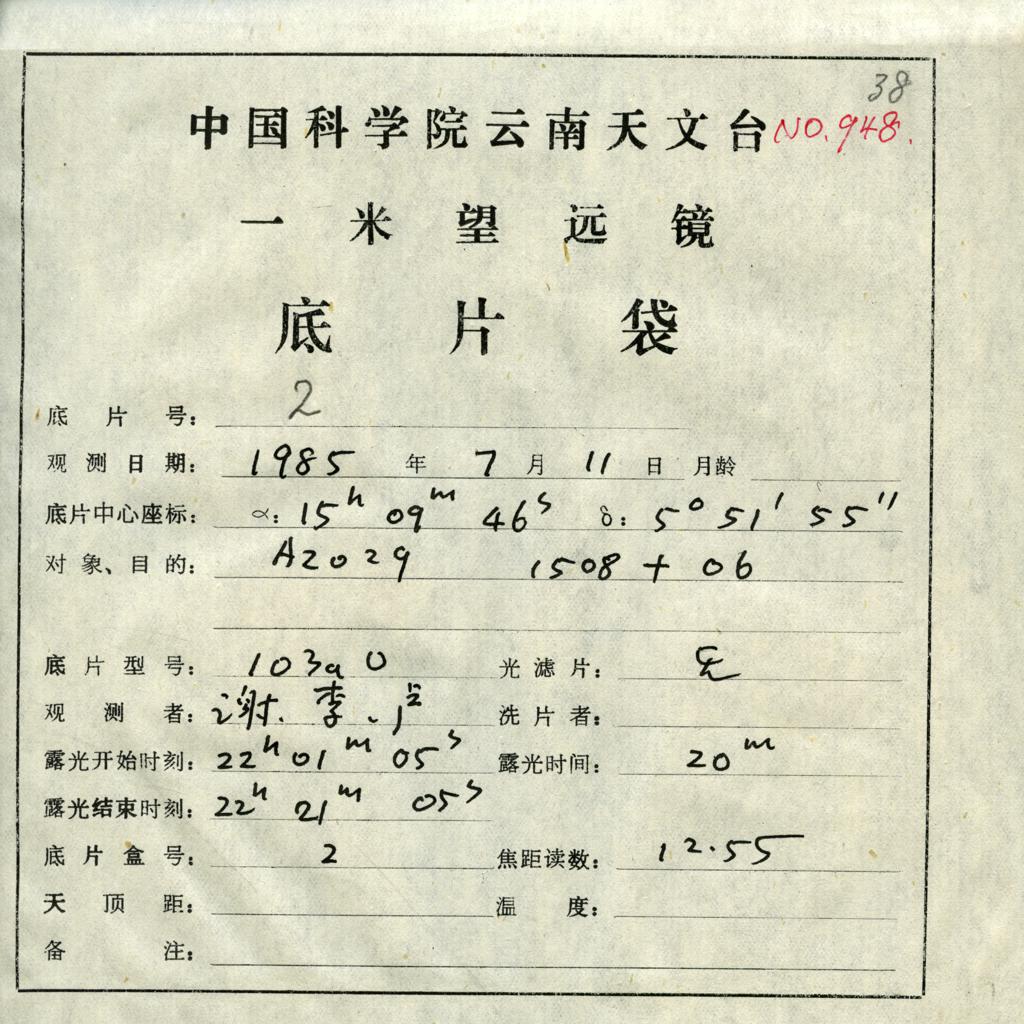 38
中国科学院云南天文台 NO.948.
一米望远镜
底片袋
底片号: 2
观测日期: 1985 年 7 月 11 日 月龄
底片中心座标: α: 15h 09m 46s δ: 5° 51' 55"
对象、目的: A2029 1508 + 06
底片型号: 103a O 光滤片: 无
观测者: 谢. 李. 洗片者:
露光开始时刻: 22h 01m 05s 露光时间: 20m
露光结束时刻: 22h 21m 05s
底片盒号: 2 焦距读数: 12.55
天顶距: 温度:
备注: